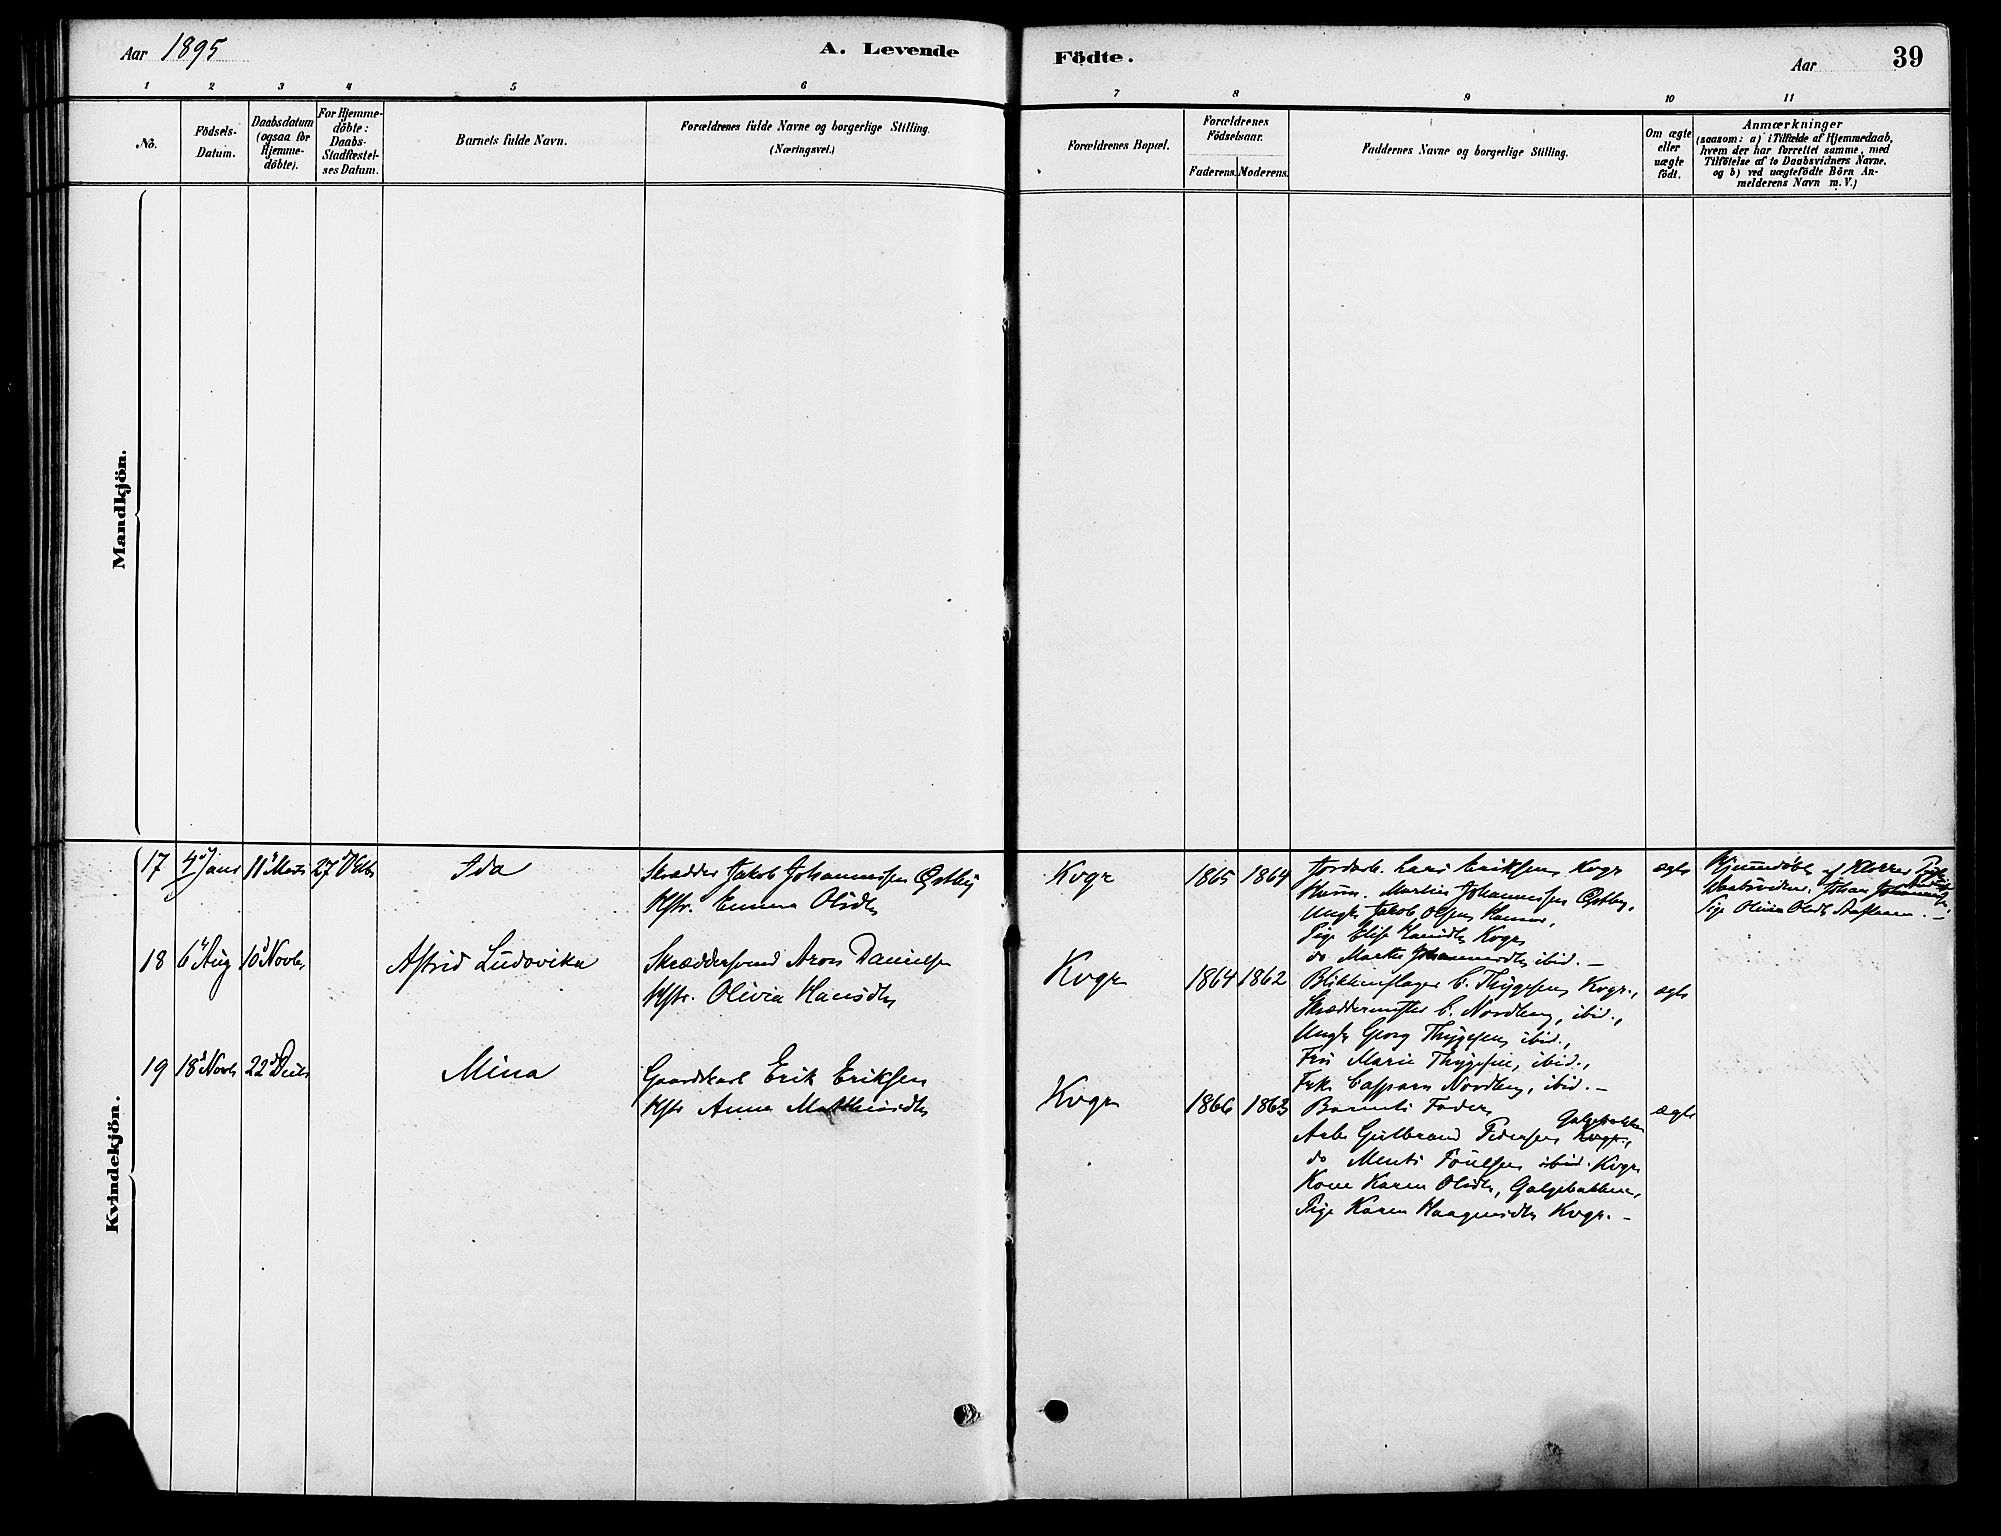 Aar 1895
A. Levende
Födte.
Aar
39
1 2 3 4 5 6 7 8 9 10 11
No.
Födsels-
Datum.
Daabsdatum
(ogsaa for
Hjemme-
döbte).
For Hjemme-
döbte:
Daabs-
Stadfæstel-
ses Datum.
Barnets fulde Navn.
Forældrenes fulde Navne og borgerlige Stilling.
(Næringsvei.)
Forældrenes Bopæl.
Forældrenes
Födselsaar.
Faderens. Moderens.
Faddernes Navne og borgerlige Stilling.
Om ægte
eller
uægte
födt.
Anmærkninger
(saasom: a) i Tilfælde af Hjemmedaab,
hvem der har forrettet samme, med
Tilföielse af to Daabsvidners Navne,
og b) ved uægtefödte Börn An-
melderens Navn m. V.)
Mandkjön.
Kvindekjön.
17
4d Janr
11d Marts
27d
Ida
Skrædder Jakob Johannessen Østby
Hstr. Emma Olsdtr
Kvgr
1865
1864
Jordarb. Lars Eriksen Kvgr
Martin Johannessen Østby,
Ungk Jakob Olsen
Pige Elise Kvgr
do Marthe Johannesdtr ibid. —
ægte
Hjemmedöbt af Klokker
Daabsvidner: Johan
Pige Olivia Olsdtr
18
6d Aug
10d Novbr
Astrid Ludovika
Skræddersvend Aron Danielsen
Hstr. Olivia Hansdtr
Kvgr
1864
1862
Blikkenslager C. Thygesen Kvgr.,
Skræddermester C. Nordberg, ibid.,
Ungk Georg Thygesen ibid.,
Fru Marie Thygesen, ibid.,
Frk Caspara Nordberg, ibid. —
ægte
19
18d Novbr
22d Decbr
Mina
Gaardskarl Erik Eriksen
Hstr Anna Mathiasdtr
Kvgr
1866
1863
Barnets Fader
Galgebakken
Arb. Gulbrand Pedersen Kvgr.,
do Ments Poulsen ibid. Kvgr
Kone Karen Olsdtr, Galgebakken,
Pige Karen Haagensdtr Kvgr. —
ægte